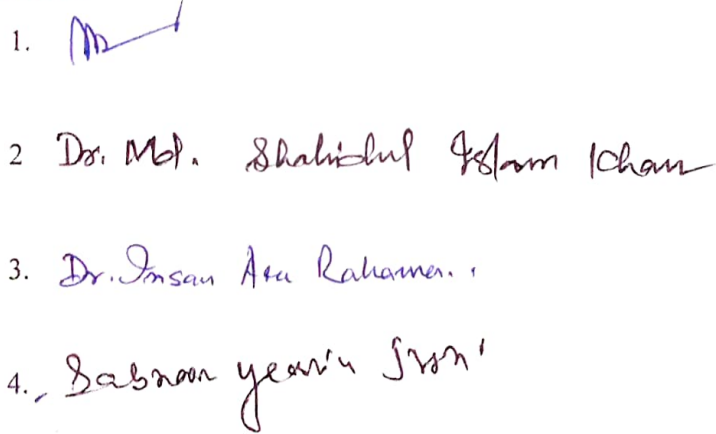 1.
2 Dr. Md. Shahidul Islam Khan
3. Dr. Insan Ara Rahaman.
4. Sabnoor yeasin